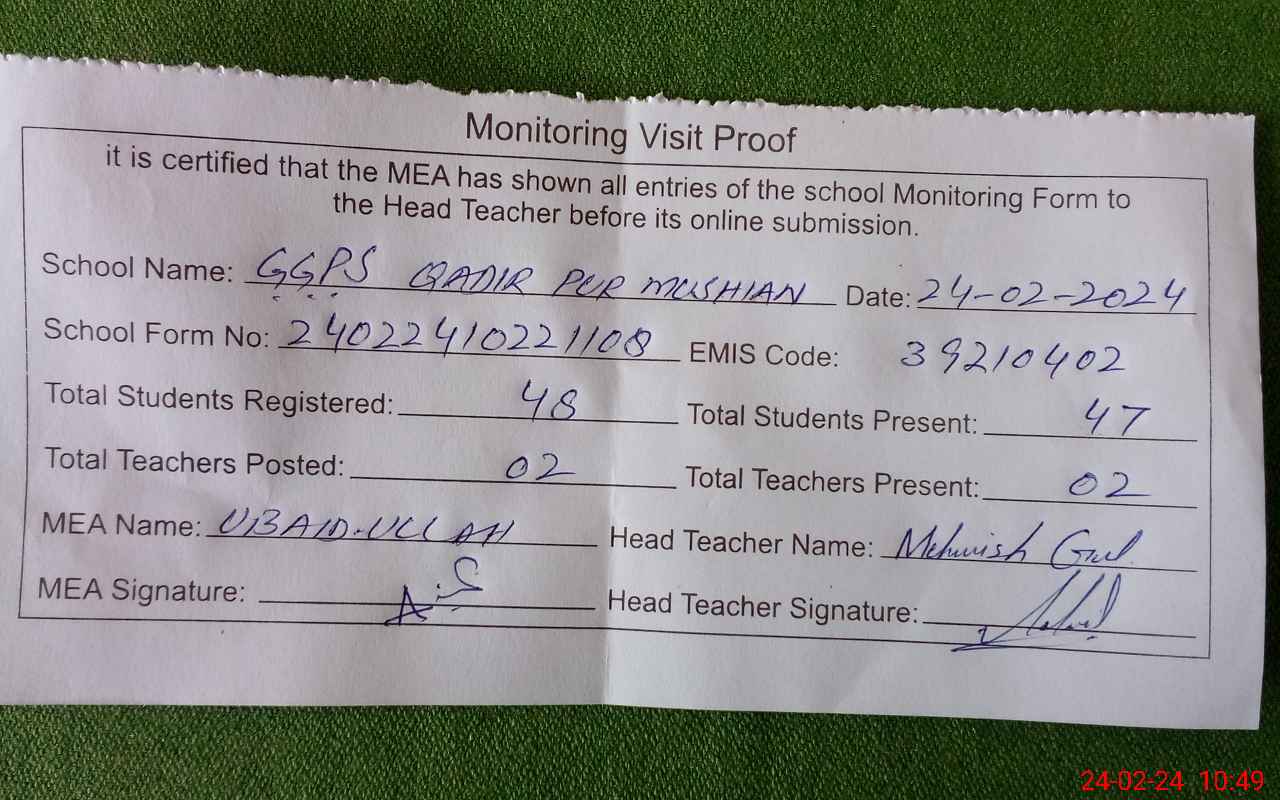 Monitoring Visit Proof
it is certified that the MEA has shown all entries of the school Monitoring Form to
the Head Teacher before its online submission.
School Name: GGPS QADIR PUR MUSHIAN Date: 24-02-2024
School Form No: 24022410221108 EMIS Code: 39210402
Total Students Registered: 48 Total Students Present: 47
Total Teachers Posted: 02 Total Teachers Present: 02
MEA Name: UBAID-ULLAH Head Teacher Name: Mehwish Gul.
MEA Signature: Head Teacher Signature:
24-02-24 10:49